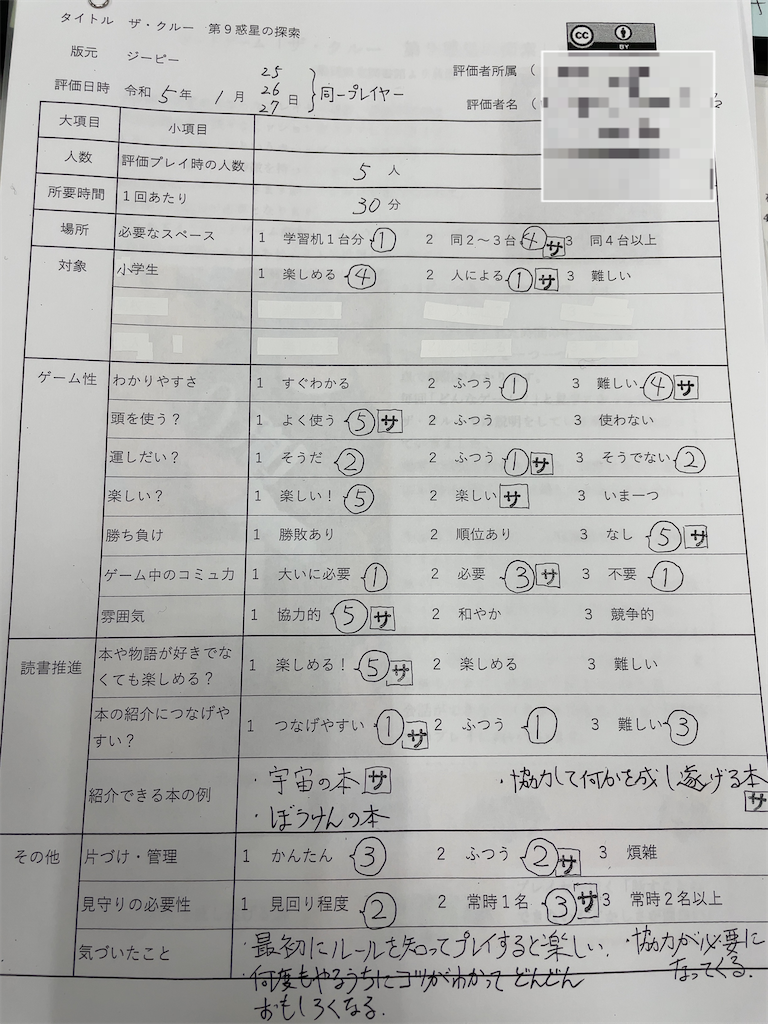 タイトル ザ・クルー 第９惑星の探索
cc BY
版元 ジーピー
評価者所属 (
評価日時 令和 5 年 1 月 25 26 27 日 } 同一プレイヤー
評価者名 (
大項目 小項目
人数 評価プレイ時の人数 5 人
所要時間 １回あたり 30 分
場所 必要なスペース 1 学習机１台分 ① 2 同２～３台 ④ サ 3 同４台以上
対象 小学生 1 楽しめる ④ 2 人による ① サ 3 難しい
ゲーム性 わかりやすさ 1 すぐわかる 2 ふつう ① 3 難しい ④ サ
頭を使う？ 1 よく使う ⑤ サ 2 ふつう 3 使わない
運しだい？ 1 そうだ ② 2 ふつう ① サ 3 そうでない ②
楽しい？ 1 楽しい！ ⑤ 2 楽しい サ 3 いま一つ
勝ち負け 1 勝敗あり 2 順位あり 3 なし ⑤ サ
ゲーム中のコミュ力 1 大いに必要 ① 2 必要 ③ サ 3 不要 ①
雰囲気 1 協力的 ⑤ サ 2 和やか 3 競争的
読書推進 本や物語が好きでな
くても楽しめる？ 1 楽しめる！ ⑤ サ 2 楽しめる 3 難しい
本の紹介につなげや
すい？ 1 つなげやすい ① サ 2 ふつう ① 3 難しい ③
紹介できる本の例 ・宇宙の本 サ ・協力して何かを成し遂げる本 サ
・ぼうけんの本
その他 片づけ・管理 1 かんたん ③ 2 ふつう ② サ 3 煩雑
見守りの必要性 1 見回り程度 ② 2 常時１名 ③ サ 3 常時２名以上
気づいたこと ・最初にルールを知ってプレイすると楽しい. ・協力が必要に
なってくる.
・何度もやるうちにコツがわかって どんどん
おもしろくなる.